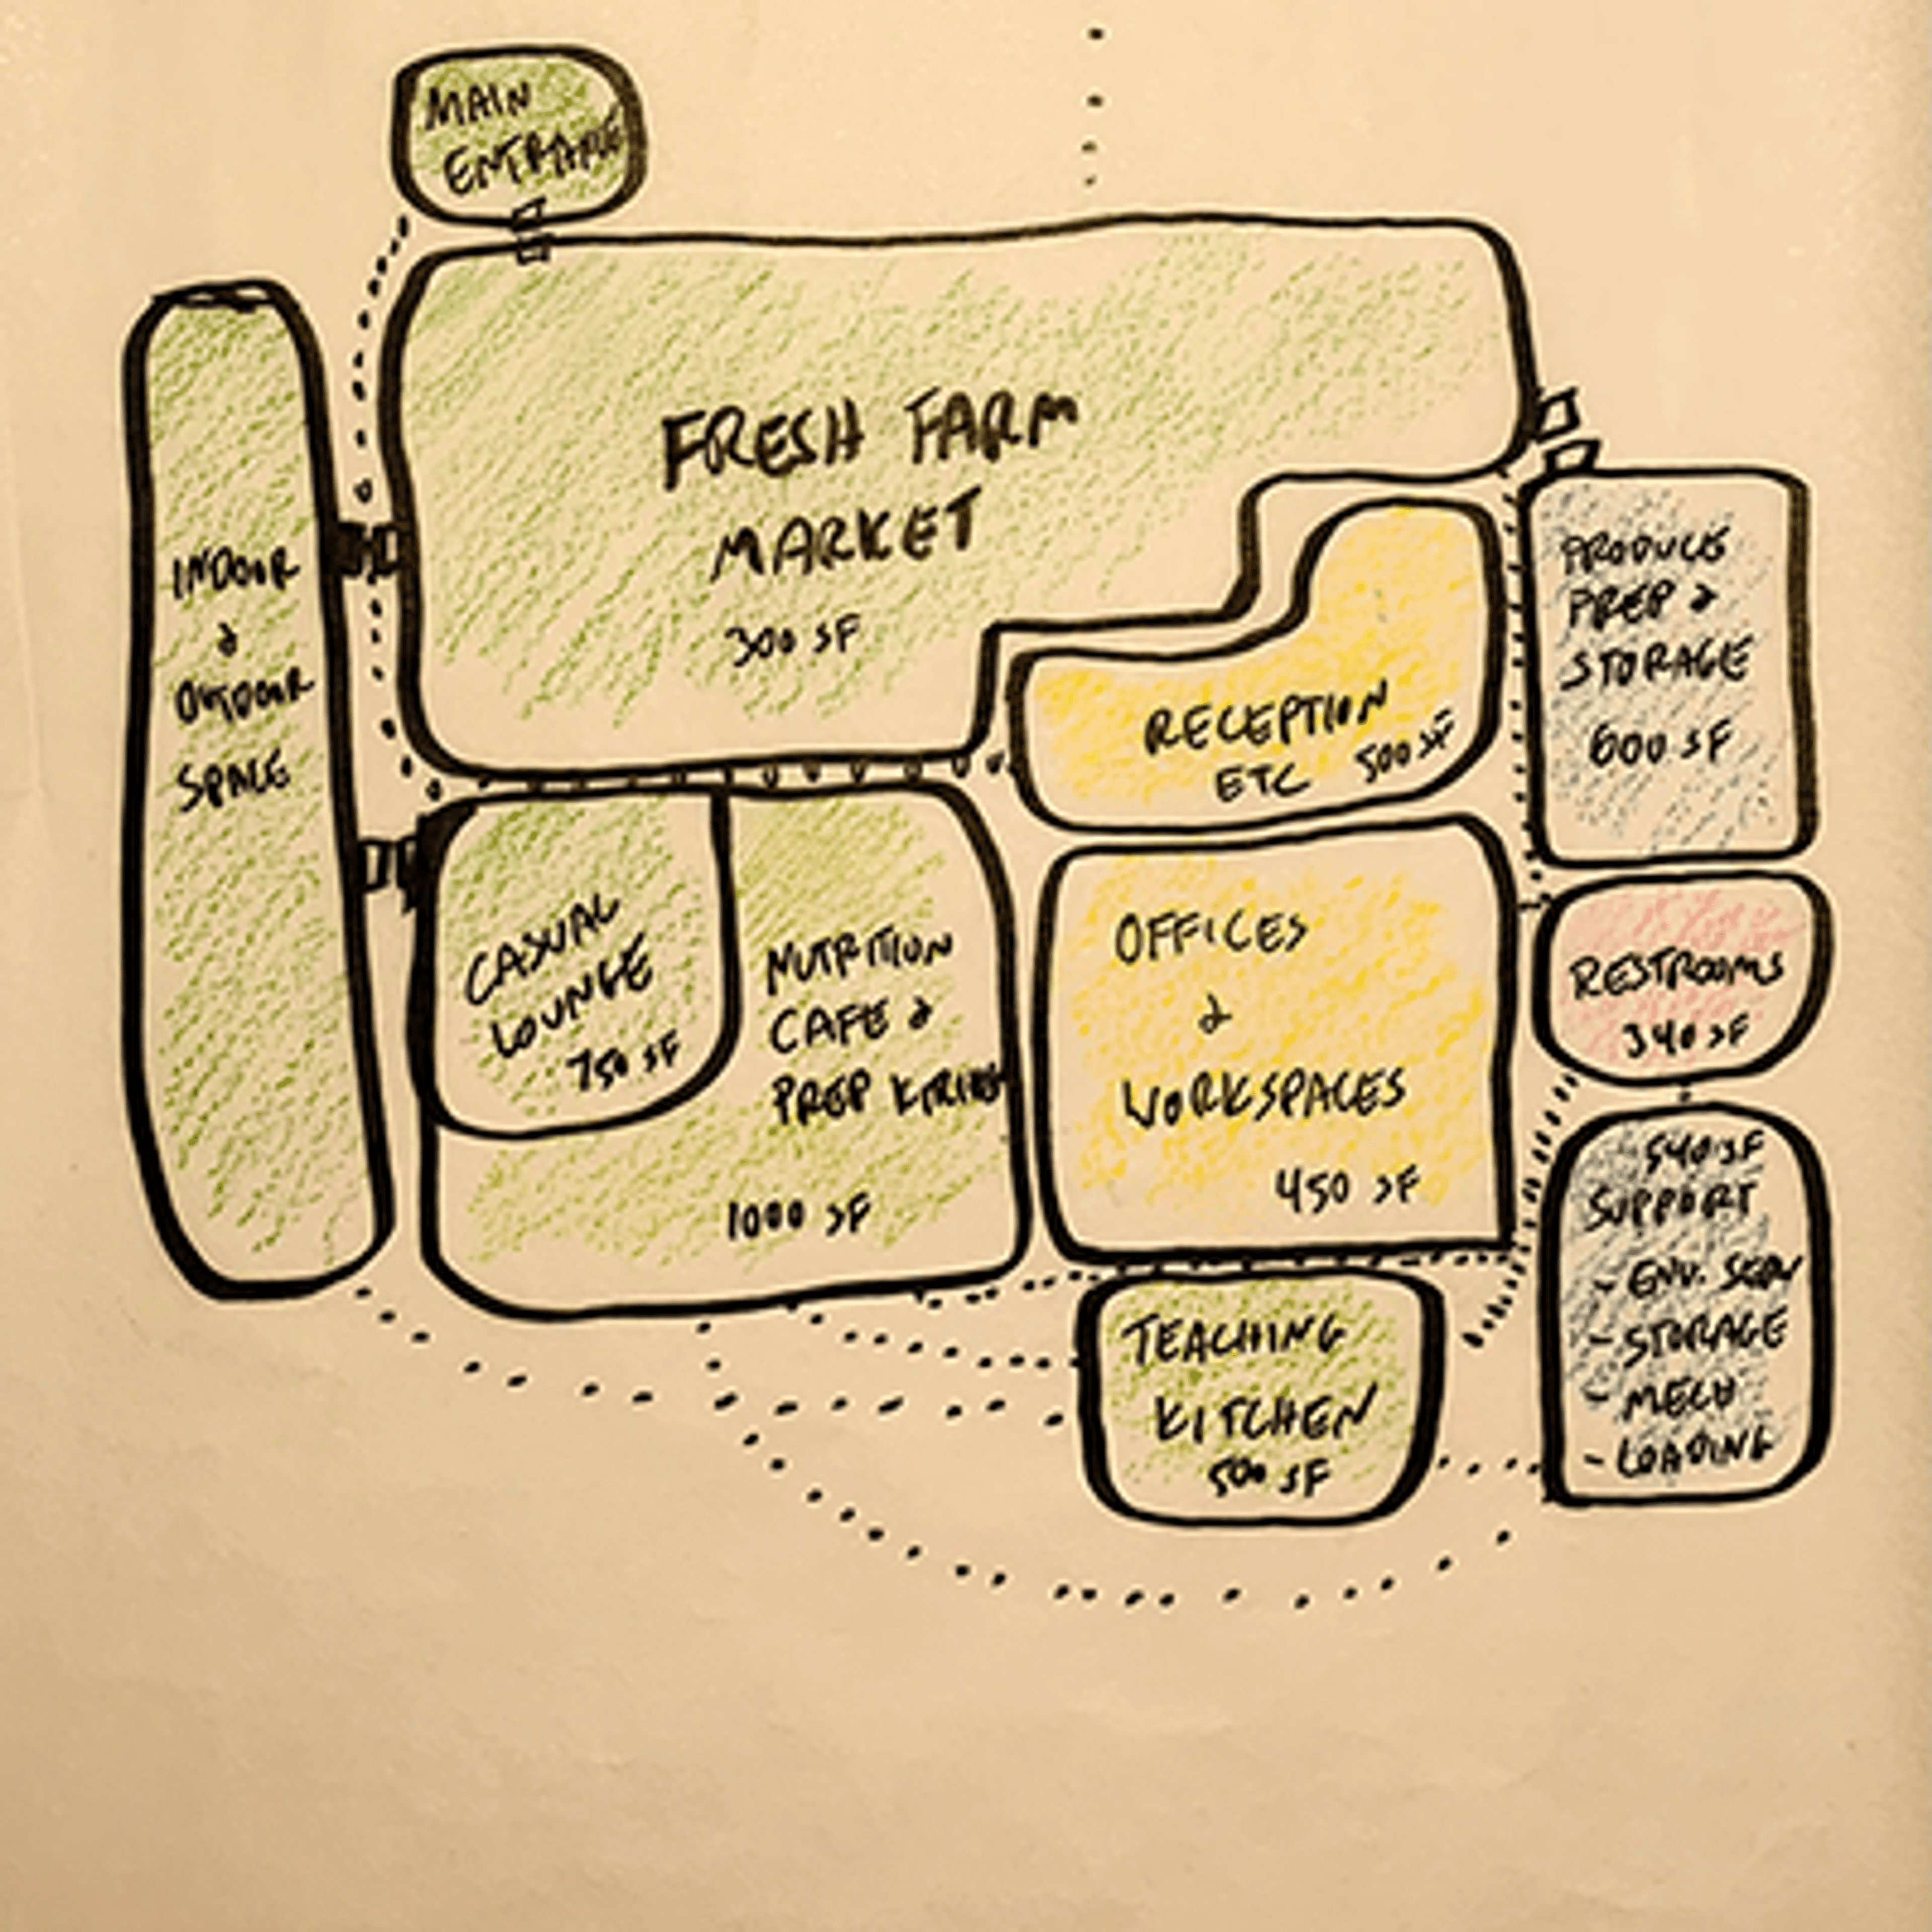 MAIN
ENTRANCE
FRESH FARM
MARKET
300 SF
INDOOR
&
OUTDOOR
SPACE
RECEPTION
ETC 500 SF
PRODUCE
PREP &
STORAGE
600 SF
CASUAL
LOUNGE
750 SF
NUTRITION
CAFE &
PREP KITCHEN
1000 SF
OFFICES
&
WORKSPACES
450 SF
RESTROOMS
340 SF
540 SF
SUPPORT
- ENV. SERV
- STORAGE
- MECH
- LOADING
TEACHING
KITCHEN
500 SF